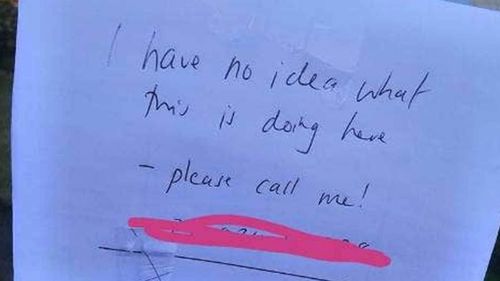 I have no idea what
this is doing here
- please call me!